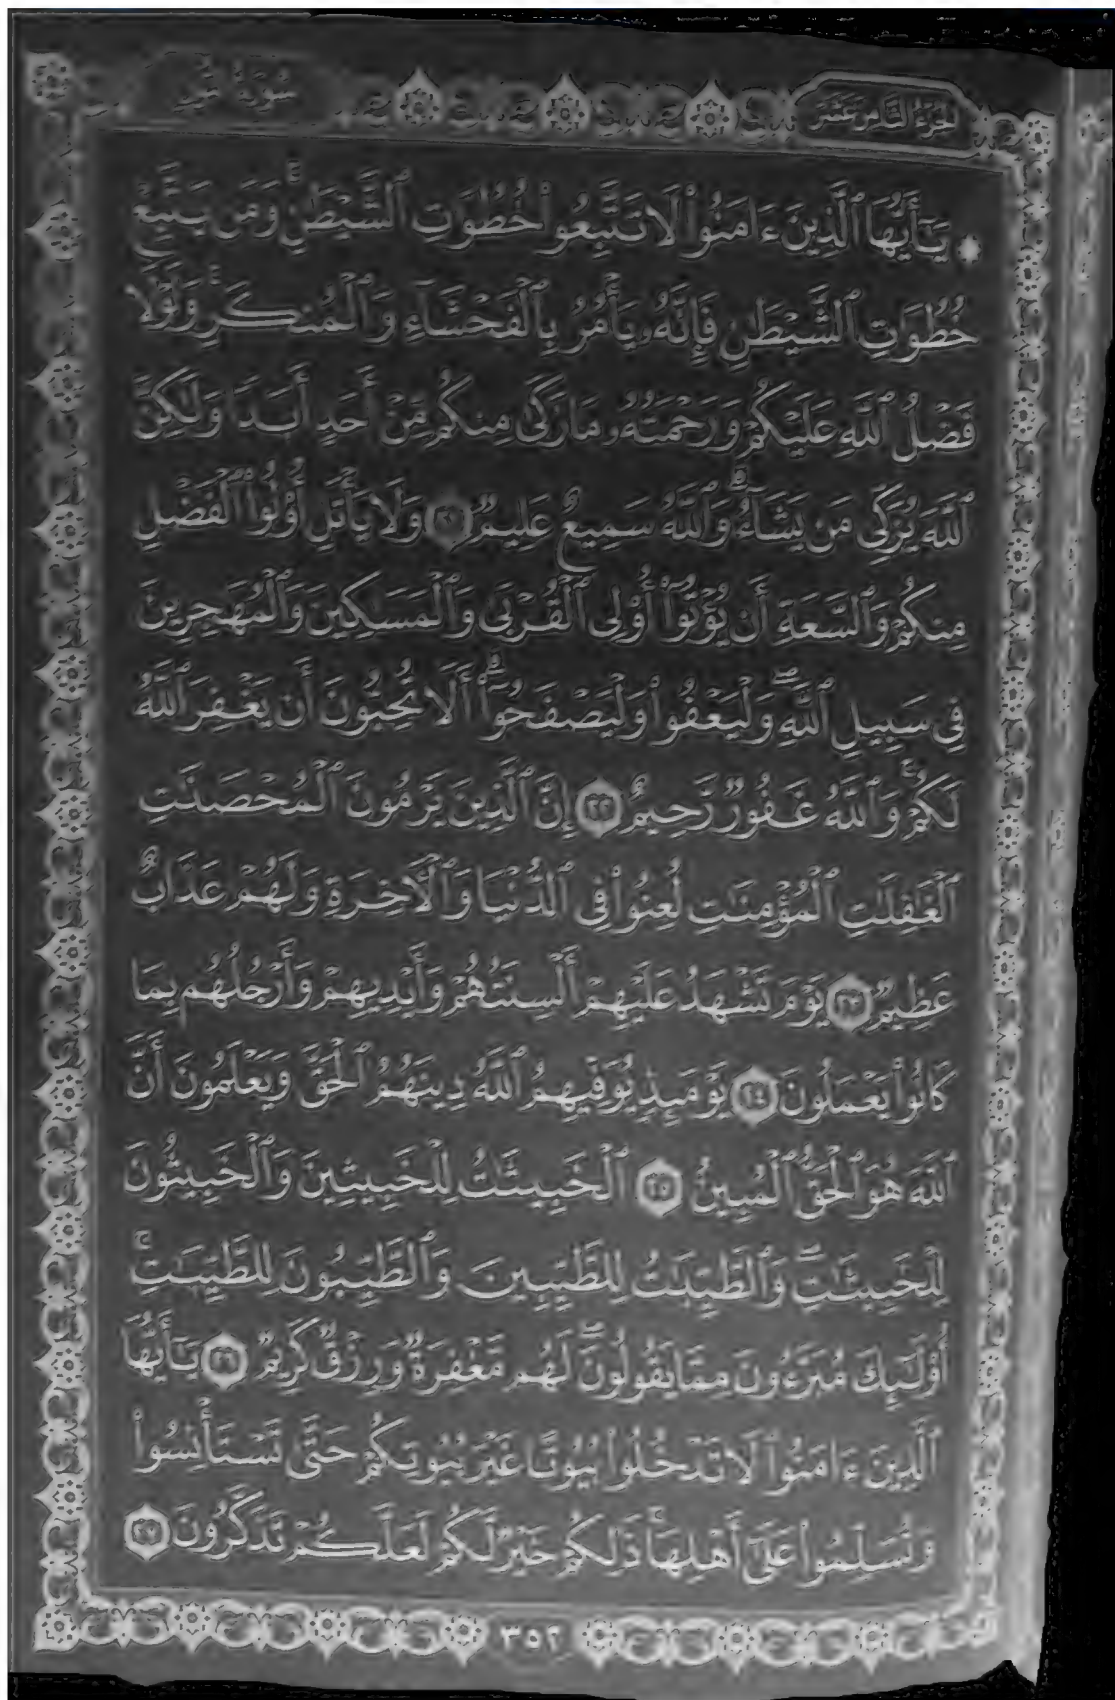 الجزء الثامن عشر
سورة
۞ يَـٰٓأَيُّهَا ٱلَّذِينَ ءَامَنُوا۟ لَا تَتَّبِعُوا۟ خُطُوَٰتِ ٱلشَّيْطَـٰنِ ۚ وَمَن يَتَّبِعْ
خُطُوَٰتِ ٱلشَّيْطَـٰنِ فَإِنَّهُۥ يَأْمُرُ بِٱلْفَحْشَآءِ وَٱلْمُنكَرِ ۚ وَلَوْلَا
فَضْلُ ٱللَّهِ عَلَيْكُمْ وَرَحْمَتُهُۥ مَا زَكَىٰ مِنكُم مِّنْ أَحَدٍ أَبَدًا وَلَـٰكِنَّ
ٱللَّهَ يُزَكِّى مَن يَشَآءُ ۗ وَٱللَّهُ سَمِيعٌ عَلِيمٌ ٢١ وَلَا يَأْتَلِ أُو۟لُوا۟ ٱلْفَضْلِ
مِنكُمْ وَٱلسَّعَةِ أَن يُؤْتُوٓا۟ أُو۟لِى ٱلْقُرْبَىٰ وَٱلْمَسَـٰكِينَ وَٱلْمُهَـٰجِرِينَ
فِى سَبِيلِ ٱللَّهِ ۖ وَلْيَعْفُوا۟ وَلْيَصْفَحُوٓا۟ ۗ أَلَا تُحِبُّونَ أَن يَغْفِرَ ٱللَّهُ
لَكُمْ ۚ وَٱللَّهُ غَفُورٌ رَّحِيمٌ ٢٢ إِنَّ ٱلَّذِينَ يَرْمُونَ ٱلْمُحْصَنَـٰتِ
ٱلْغَـٰفِلَـٰتِ ٱلْمُؤْمِنَـٰتِ لُعِنُوا۟ فِى ٱلدُّنْيَا وَٱلْـَٔاخِرَةِ وَلَهُمْ عَذَابٌ
عَظِيمٌ ٢٣ يَوْمَ تَشْهَدُ عَلَيْهِمْ أَلْسِنَتُهُمْ وَأَيْدِيهِمْ وَأَرْجُلُهُم بِمَا
كَانُوا۟ يَعْمَلُونَ ٢٤ يَوْمَئِذٍ يُوَفِّيهِمُ ٱللَّهُ دِينَهُمُ ٱلْحَقَّ وَيَعْلَمُونَ أَنَّ
ٱللَّهَ هُوَ ٱلْحَقُّ ٱلْمُبِينُ ٢٥ ٱلْخَبِيثَـٰتُ لِلْخَبِيثِينَ وَٱلْخَبِيثُونَ
لِلْخَبِيثَـٰتِ ۖ وَٱلطَّيِّبَـٰتُ لِلطَّيِّبِينَ وَٱلطَّيِّبُونَ لِلطَّيِّبَـٰتِ ۚ
أُو۟لَـٰٓئِكَ مُبَرَّءُونَ مِمَّا يَقُولُونَ ۖ لَهُم مَّغْفِرَةٌ وَرِزْقٌ كَرِيمٌ ٢٦ يَـٰٓأَيُّهَا
ٱلَّذِينَ ءَامَنُوا۟ لَا تَدْخُلُوا۟ بُيُوتًا غَيْرَ بُيُوتِكُمْ حَتَّىٰ تَسْتَأْنِسُوا۟
وَتُسَلِّمُوا۟ عَلَىٰٓ أَهْلِهَا ۚ ذَٰلِكُمْ خَيْرٌ لَّكُمْ لَعَلَّكُمْ تَذَكَّرُونَ ٢٧
٣٥٢